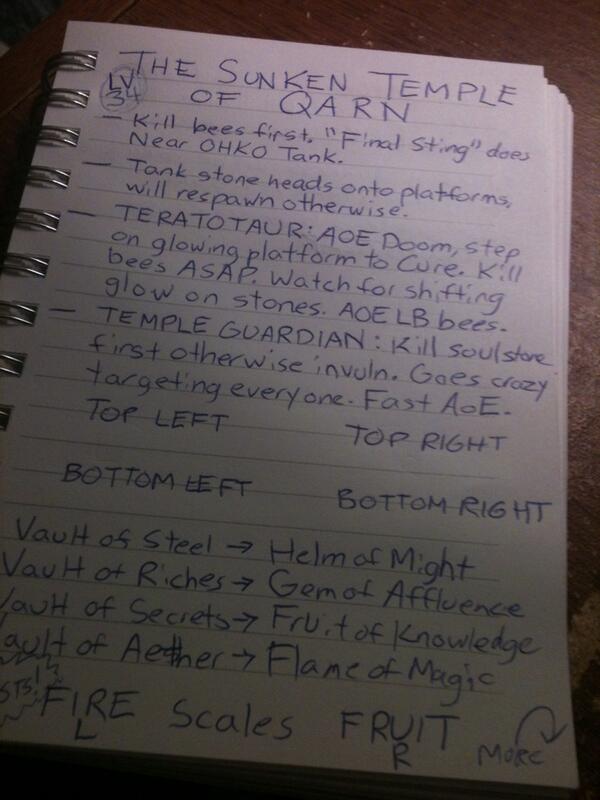 THE SUNKEN TEMPLE
LV 34 OF QARN
- Kill bees first. "Final Sting" does
Near OHKO Tank.
- Tank stone heads onto platforms,
will respawn otherwise.
- TERATOTAUR: AOE Doom, step
on glowing platform to Cure. Kill
bees ASAP. Watch for shifting
glow on stones. AOE LB bees.
- TEMPLE GUARDIAN: Kill soulstone
first otherwise invuln. Goes crazy
targeting everyone. Fast AoE.
TOP LEFT TOP RIGHT
BOTTOM LEFT BOTTOM RIGHT
Vault of Steel → Helm of Might
Vault of Riches → Gem of Affluence
Vault of Secrets → Fruit of Knowledge
Vault of Aether → Flame of Magic
FIRE Scales FRUIT
L R MORE